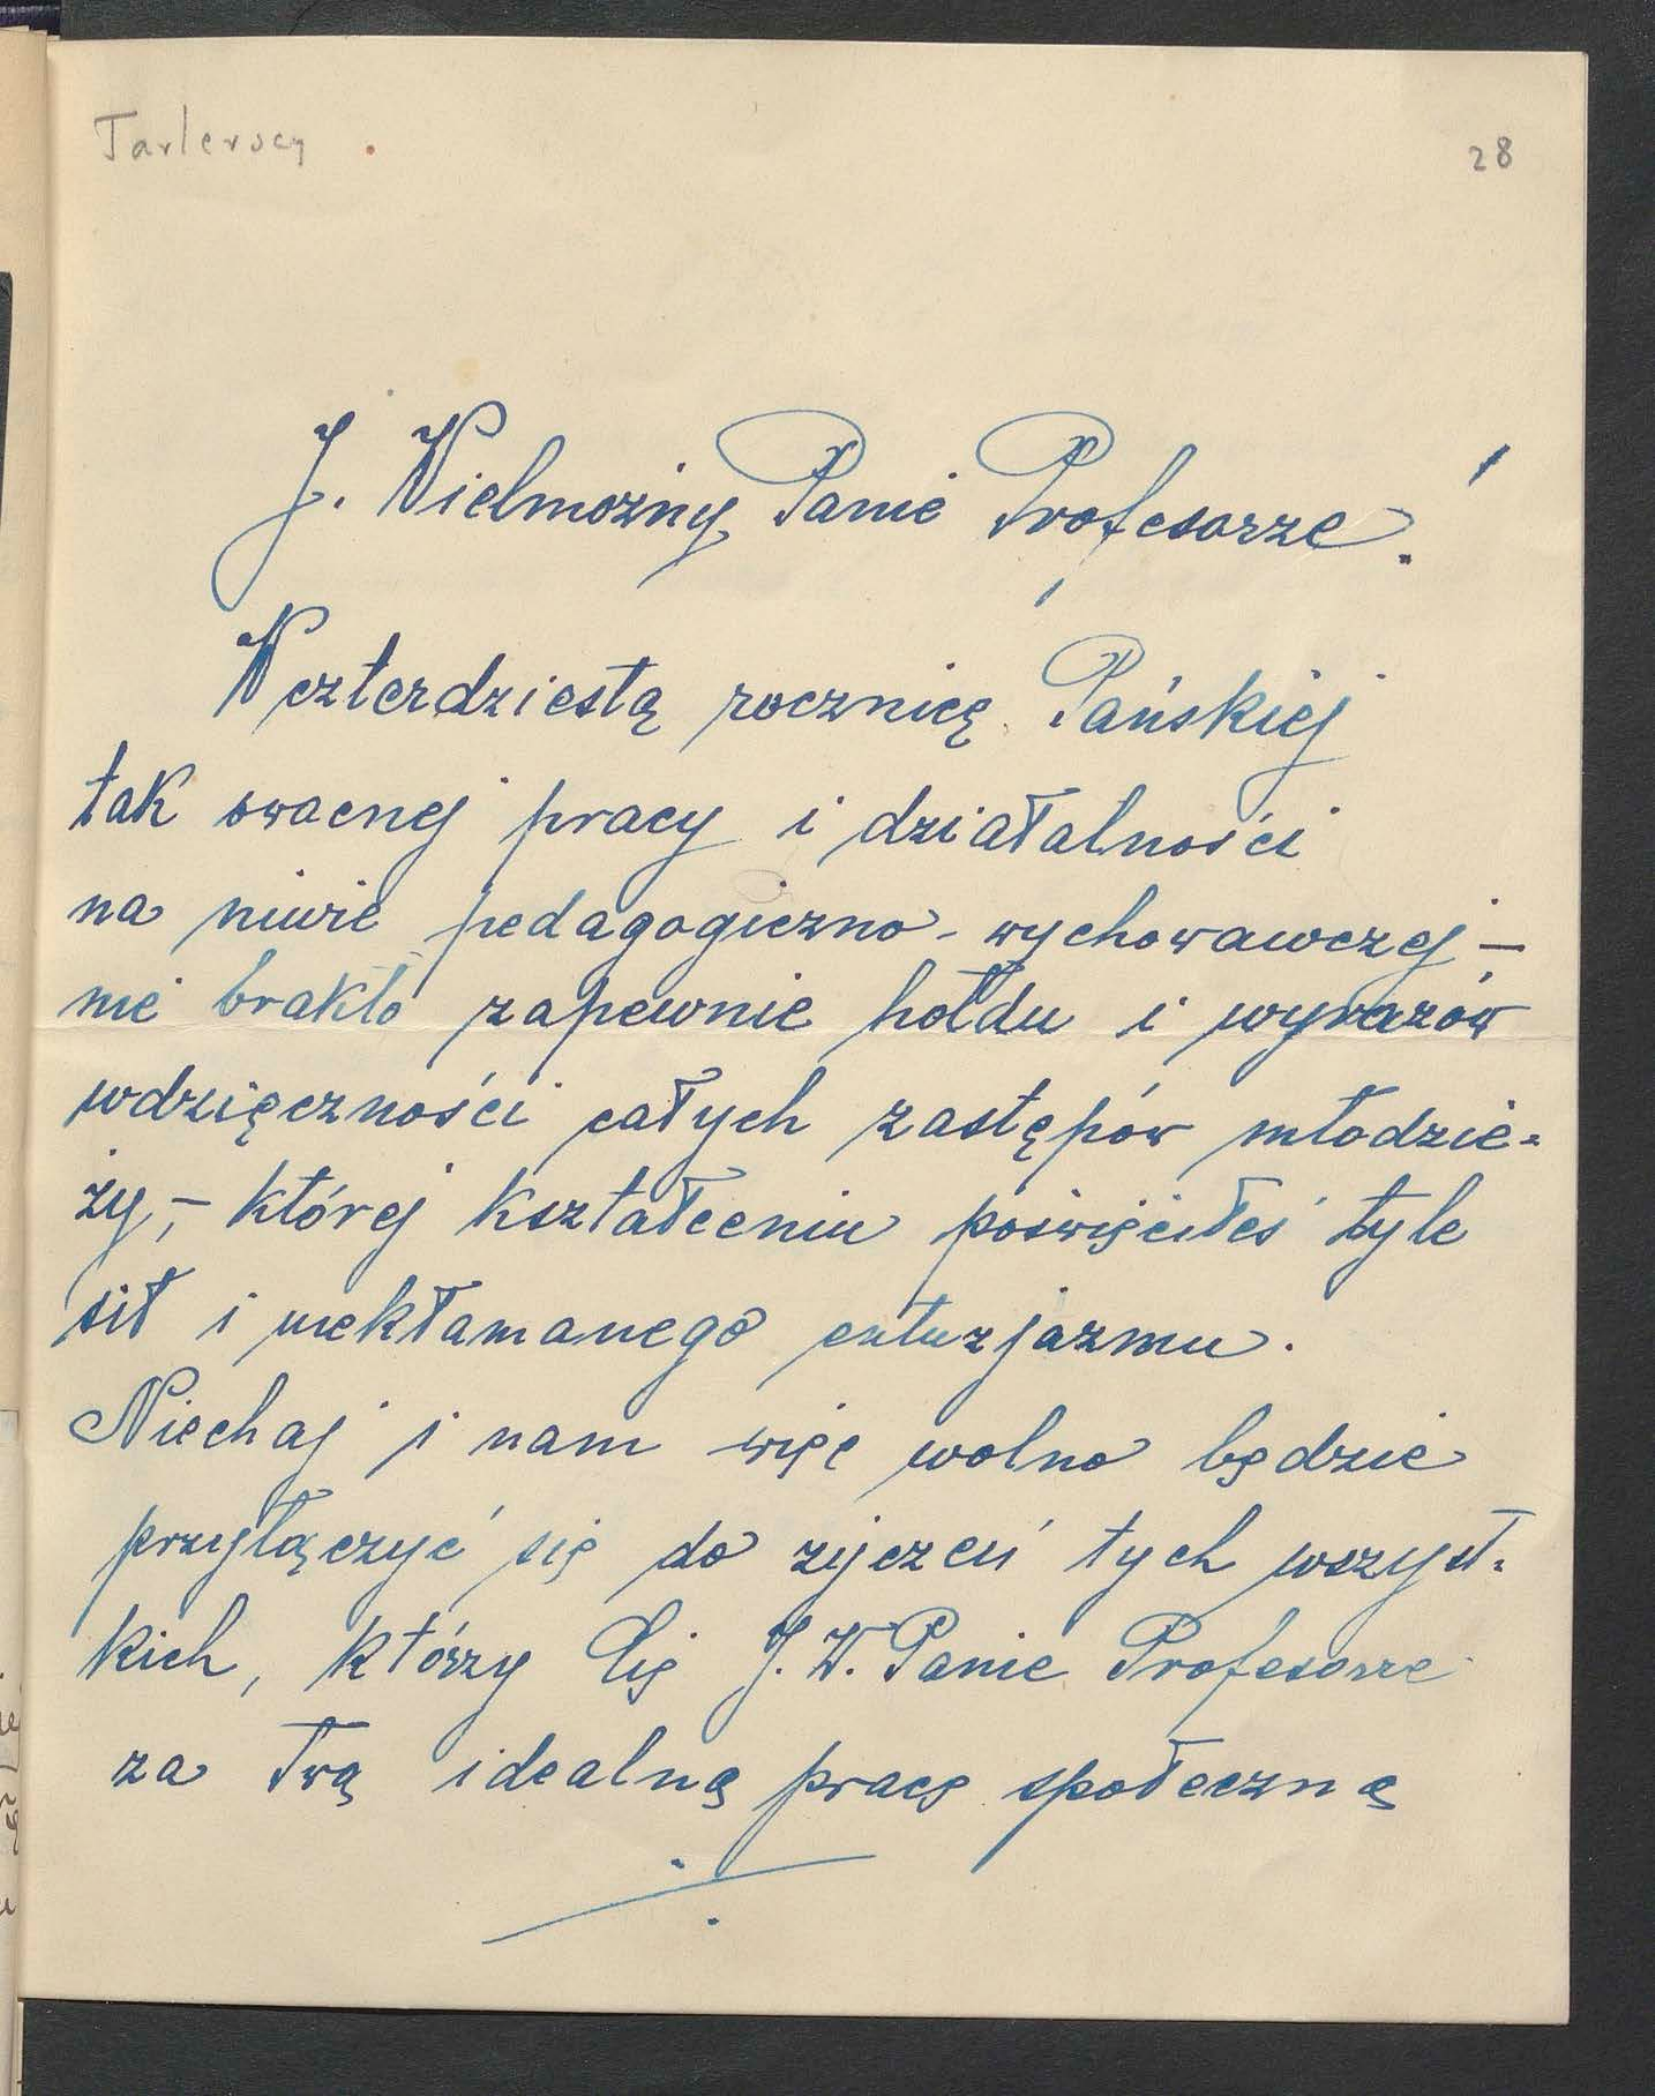 Tarlerscy
28
J. Wielmożny Panie Profesorze!
W czterdziestą rocznicę Pańskiej
tak owocnej pracy i działalności
na niwie pedagogiczno-wychowawczej –
nie brakło zapewnie hołdu i wyrazów
wdzięczności całych zastępów młodzie=
ży, – której kształceniu poświęciłeś tyle
sił i niekłamanego entuzjazmu.
Niechaj i nam więc wolno będzie
przyłączyć się do życzeń tych wszyst=
kich, którzy Cię J. W. Panie Profesorze
za Twą idealną pracę społeczną